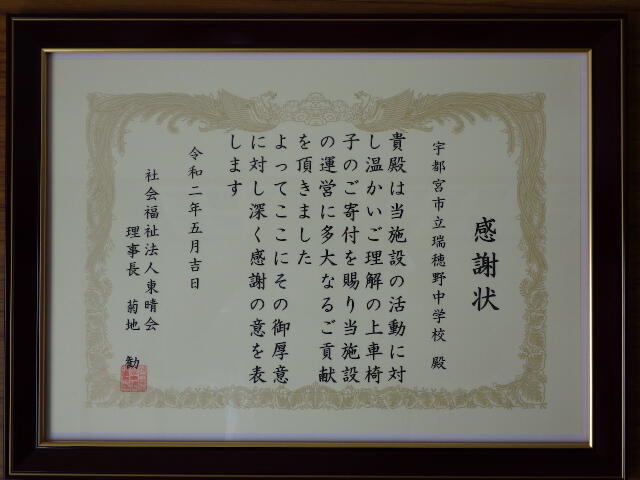 感謝状
宇都宮市立瑞穂野中学校 殿
貴殿は当施設の活動に対
し温かいご理解の上車椅
子のご寄付を賜り当施設
の運営に多大なるご貢献
を頂きました
よってここにその御厚意
に対し深く感謝の意を表
します
令和二年五月吉日
社会福祉法人東晴会
理事長 菊地 勧